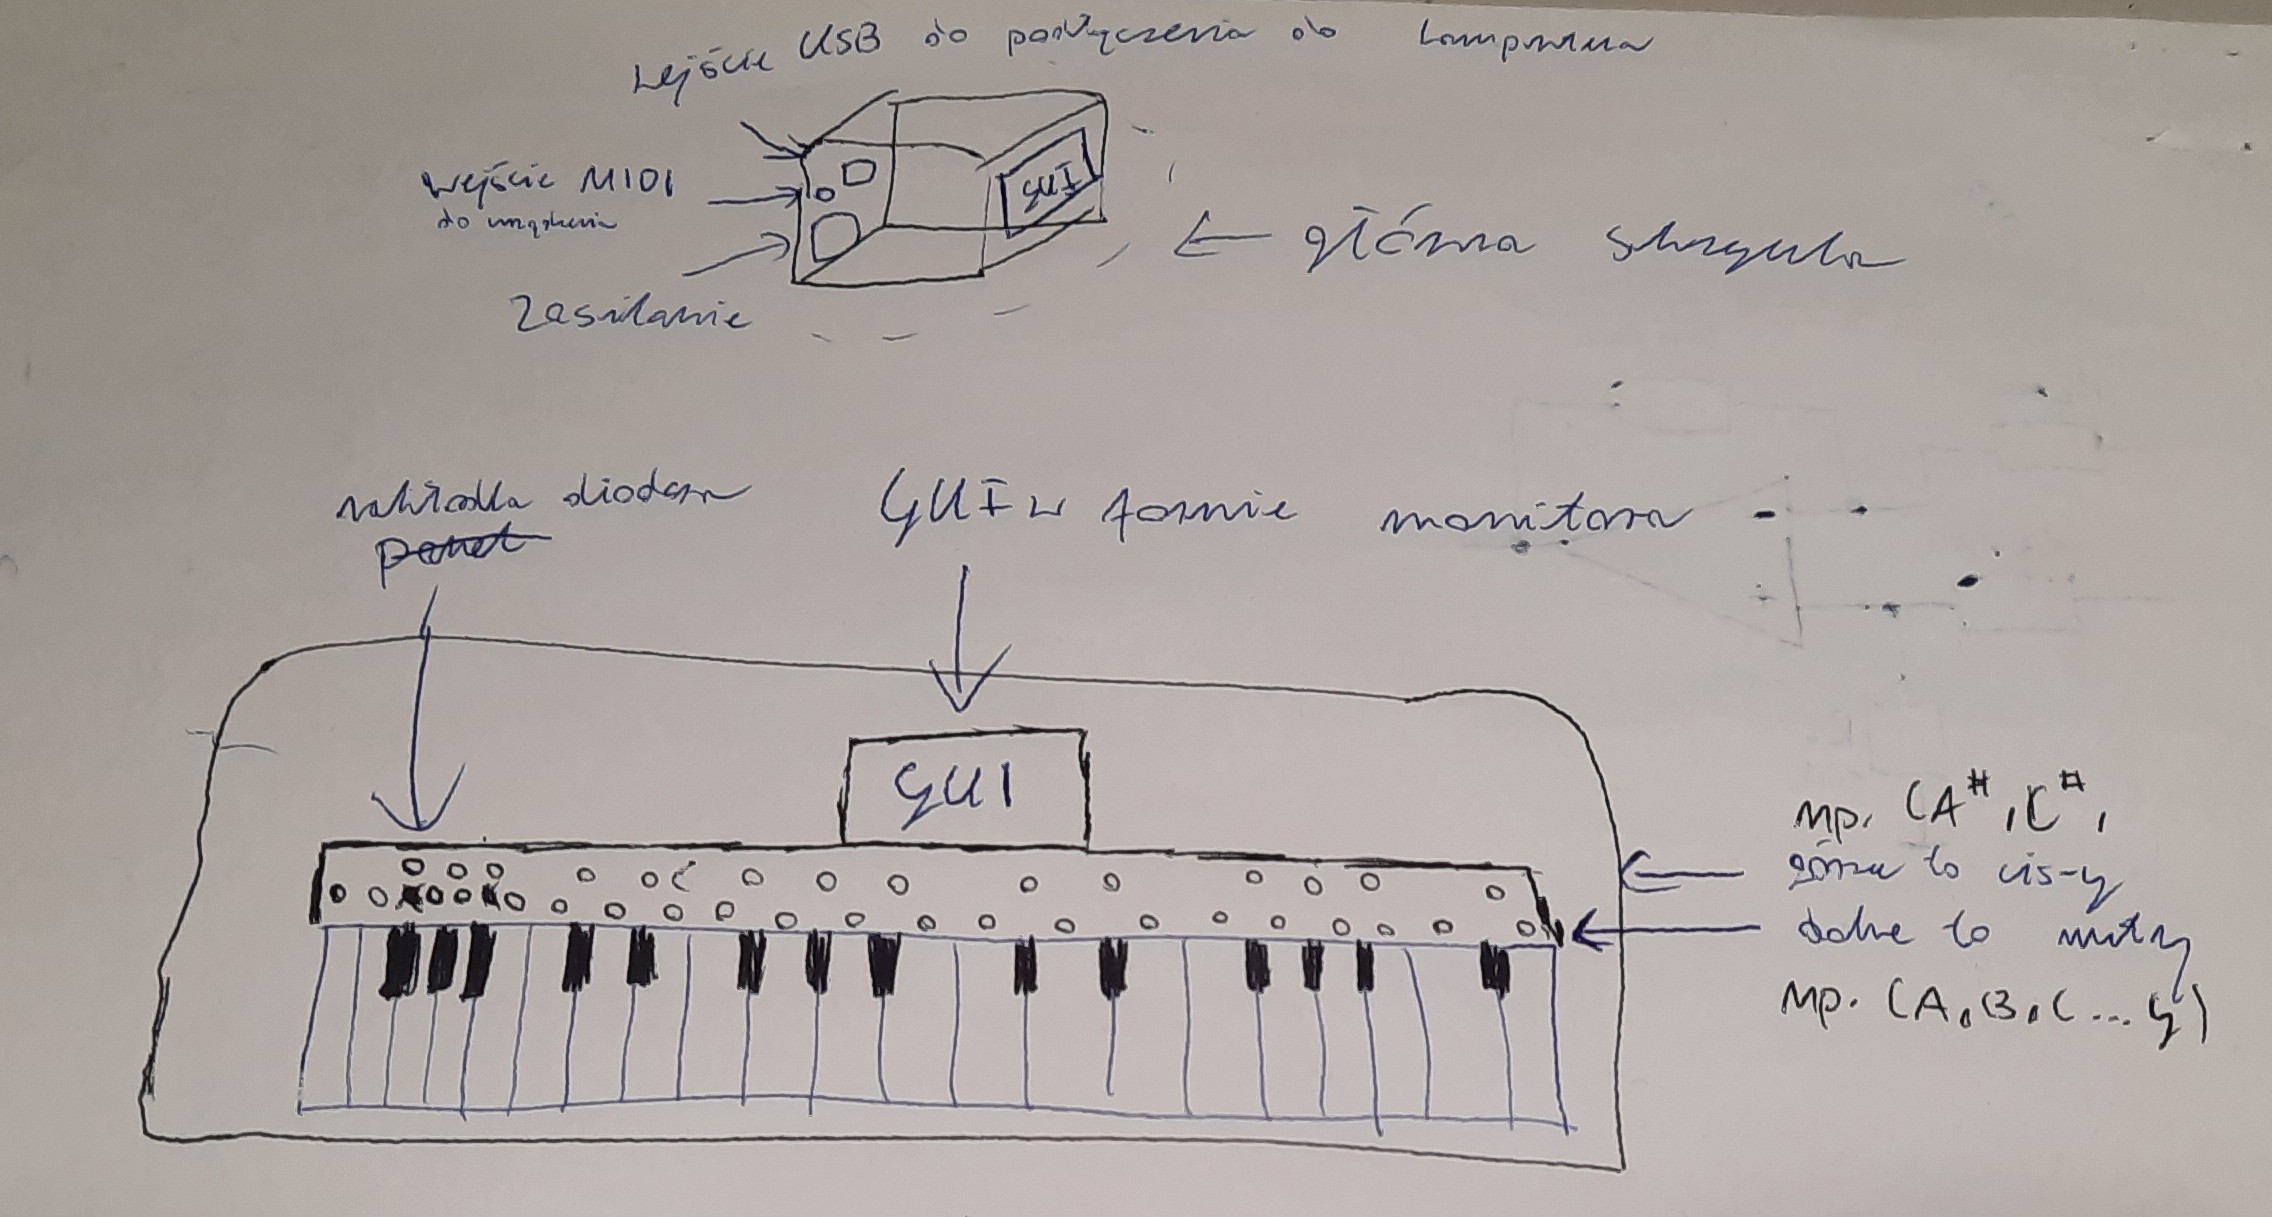 wejście USB do podłączenia do komputera
wejście MIDI
do urządzenia
Zasilanie
GUI
główna skrzynka
nakładka diodowa
panel
GUI w formie monitora
GUI
np. (A#, C#,
górne to cis-y
dolne to nuty
np. (A, B, C ... G)